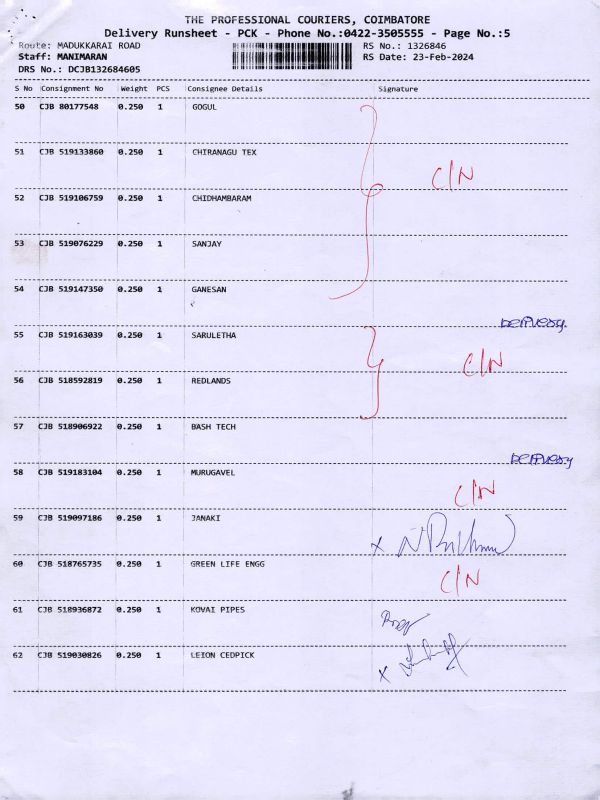 THE PROFESSIONAL COURIERS, COIMBATORE
Delivery Runsheet - PCK - Phone No.:0422-3505555 - Page No.:5
Route: MADUKKARAI ROAD RS No.: 1326846
Staff: MANIMARAN RS Date: 23-Feb-2024
DRS No.: DCJB132684605
S No Consignment No Weight PCS Consignee Details Signature
50 CJB 80177548 0.250 1 GOGUL
51 CJB 519133860 0.250 1 CHIRANAGU TEX
C/N
52 CJB 519106759 0.250 1 CHIDHAMBARAM
53 CJB 519076229 0.250 1 SANJAY
54 CJB 519147350 0.250 1 GANESAN
55 CJB 519163039 0.250 1 SARULETHA
C/N
56 CJB 518592819 0.250 1 REDLANDS
57 CJB 518906922 0.250 1 BASH TECH
58 CJB 519183104 0.250 1 MURUGAVEL
C/N
59 CJB 519097186 0.250 1 JANAKI
X
60 CJB 518765735 0.250 1 GREEN LIFE ENGG
C/N
61 CJB 518936872 0.250 1 KOVAI PIPES
62 CJB 519030826 0.250 1 LEION CEDPICK
X